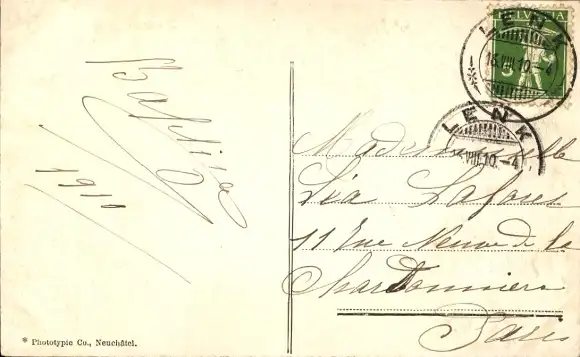 HELVETIA
5
LENK
16.VIII.10.-4
LENK
VIII.10.-4
1910
Mademoiselle
Léa
11 Rue Neuve de la
Chardonnière
Paris
* Phototypie Co., Neuchâtel.